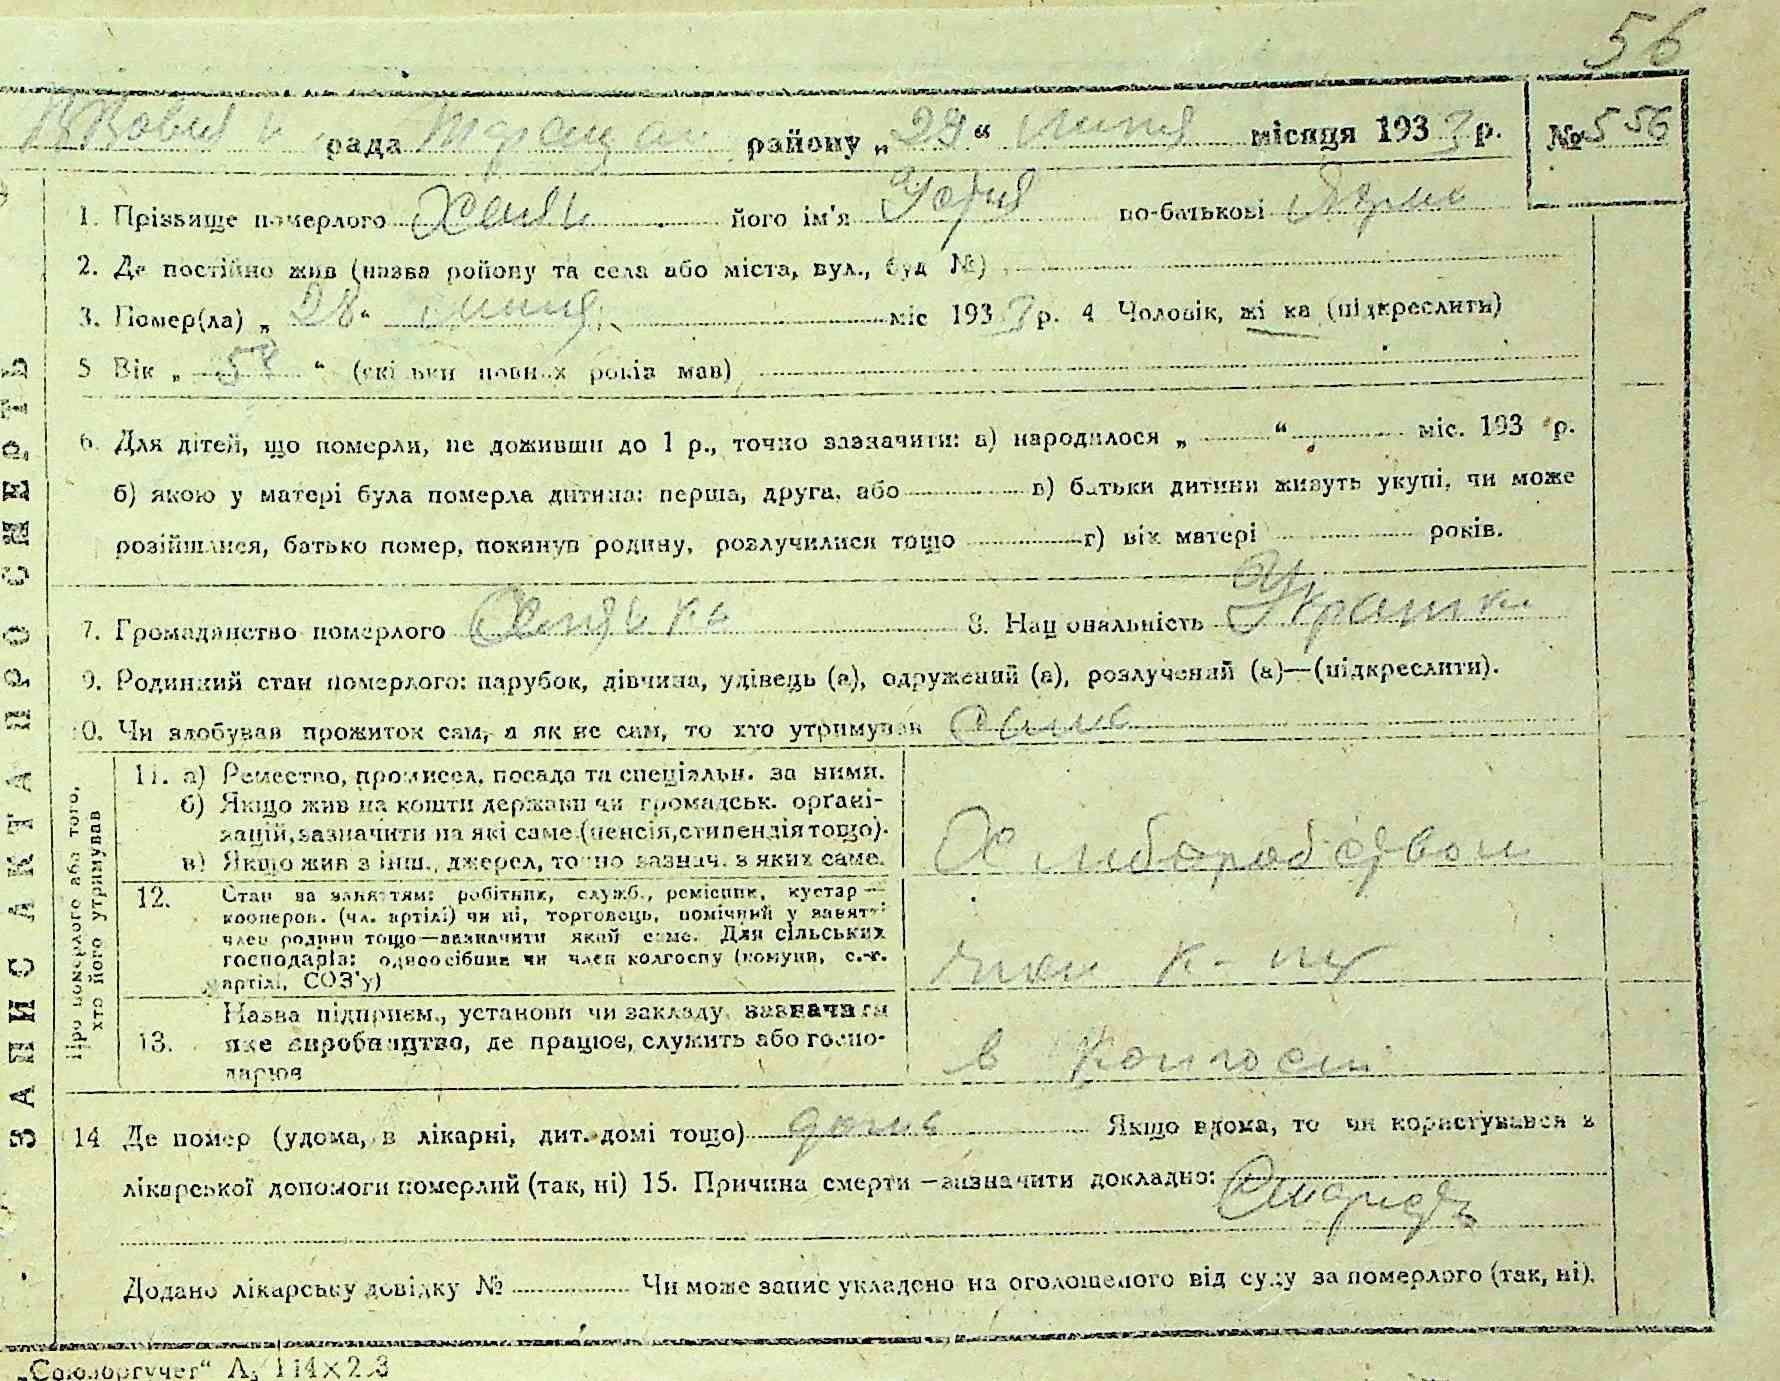 56
рада району „29“ липня місяця 1933 р. № 556
1. Прізвище померлого його ім'я по-батькові
2. Де постійно жив (назва району та села або міста, вул., буд №)
3. Помер(ла) „28“ липня міс 1933 р. 4 Чоловік, жінка (підкреслити)
5 Вік „ “ (скільки повних років мав)
6. Для дітей, що померли, не доживши до 1 р., точно зазначити: а) народилося „ “ міс. 193 р.
б) якою у матері була померла дитина: перша, друга, або в) батьки дитини живуть укупі, чи може
розійшлися, батько помер, покинув родину, розлучилися тощо г) вік матері років.
7. Громадянство померлого Селянка 8. Національність Украінка
9. Родинний стан померлого: парубок, дівчина, удівець (а), одружений (а), розлучений (а)—(підкреслити).
10. Чи здобував прожиток сам, а як не сам, то хто утримував сама
ЗАПИС АКТА ПРО СМЕРТЬ
Про померлого або того, хто його утримував
11. а) Ремество, промисел, посада та спеціальн. за ними.
б) Якщо жив на кошти держави чи громадськ. орґані-
зацій, зазначити на які саме (пенсія, стипендія тощо).
в) Якщо жив з інш. джерел, точно зазнач. з яких саме.
12. Стан за заняттям: робітник, служб., ремісник, кустар—
кооперов. (чл. артілі) чи ні, торговець, помічний у занятті
член родини тощо—зазначити який саме. Для сільських
господарів: одноосібник чи член колгоспу (комуни, с.-г.
артілі, СОЗ'у)
член к-пу
13. Назва підприєм., установи чи закладу, зазначати
яке виробництво, де працює, служить або госпо-
дарює
в колгоспі
14 Де помер (удома, в лікарні, дит. домі тощо) дома Якщо вдома, то чи користувався з
лікарської допомоги померлий (так, ні) 15. Причина смерти—зазначити докладно:
Додано лікарську довідку № Чи може запис укладено на оголошеного від суду за померлого (так, ні).
„Союзоргучет“ А₅ 114×2.3